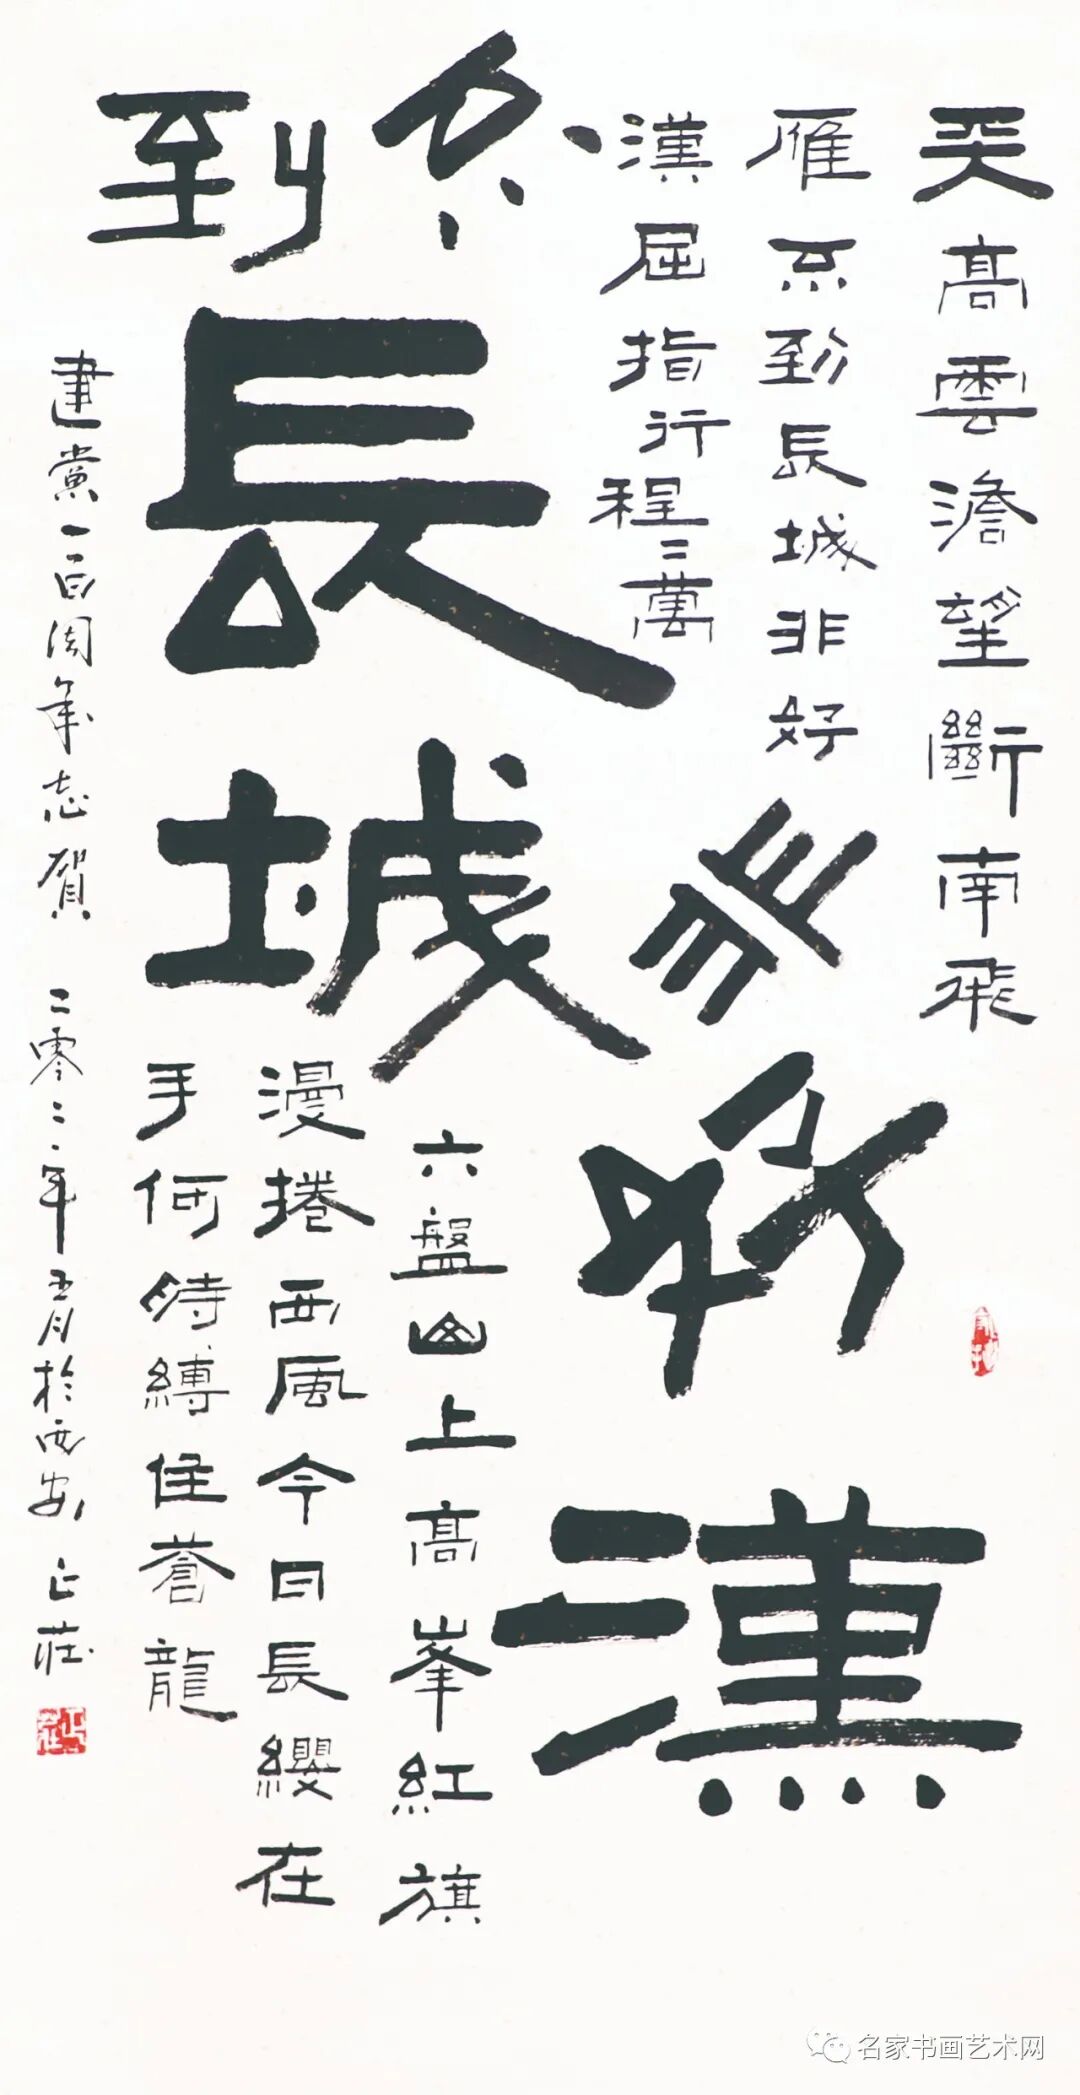 天高雲澹望斷南飛
雁不到長城非好
漢屈指行程二萬
不到長城
非好漢
六盤山上高峯紅旗
漫捲西風今日長纓在
手何時縛住蒼龍
建黨一百周年志賀 二零二一年五月於西安 正莊
正莊
名家书画艺术网